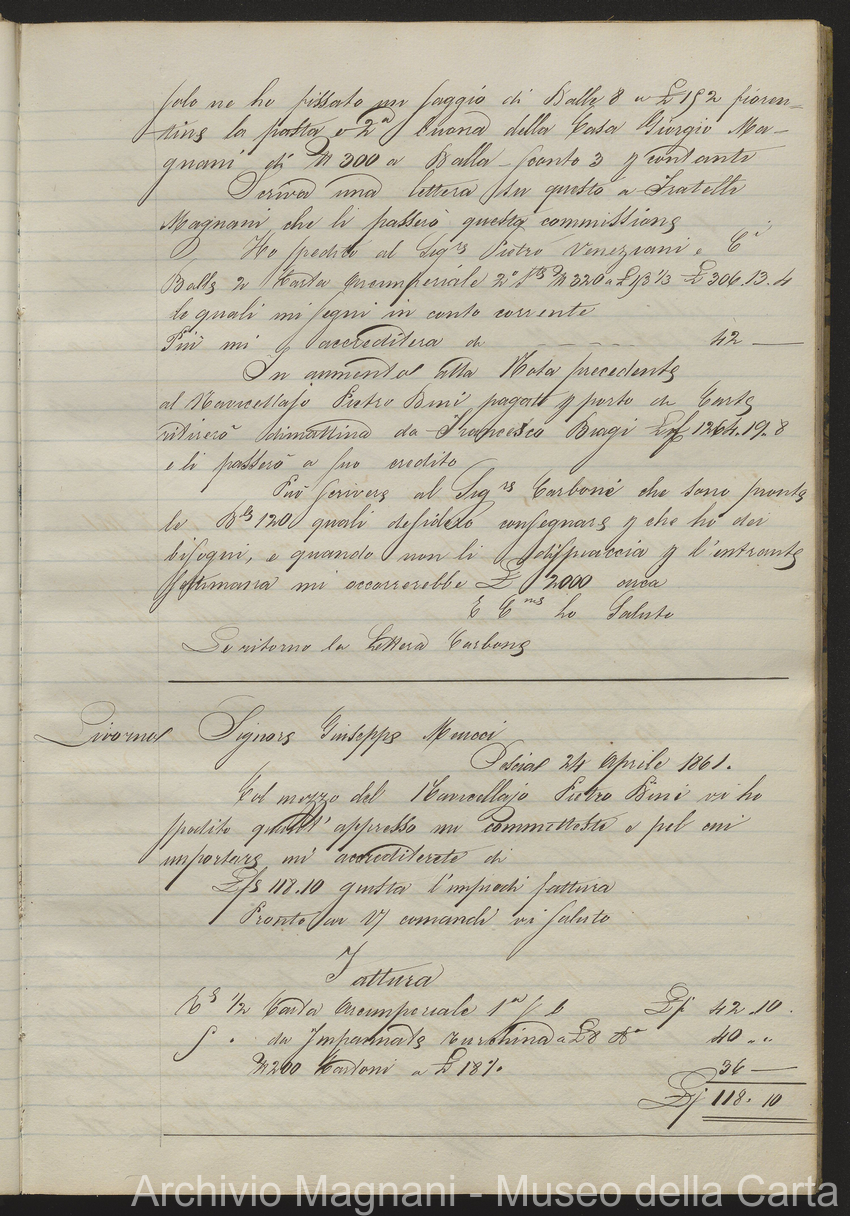 solo ne ho fissato un saggio di Balle 8 a £ 192 fioren=
tine la posta e 2ª buona della Casa Giorgio Ma-
gnani di 300 a Balla - Sconto 3 p contante
Scriva una lettera su questo a Fratelli
Magnani che li passerò questa commissione
Ho spedito al Sigrs Pietro Veneziani e Cⁱ
Balle 2 Carta Arcimperiale 2ª 320 a £ 93 1/3 £ 306.13.4
le quali mi segni in conto corrente
Più mi accrediterà di - - - - - 42 —
In aumento alla Nota precedente
al Navicellajo Pietro Bini pagato p porto di Carte
ritirerò dimattina da Francesco Biagi 1264.19.8
e li passerò a suo credito
Può scrivere al Sigrs Carbone che sono pronte
le Bls 120 quali desidero consegnare p che ho dei
bisogni, e quando non li dispiaccia p l'entrante
settimana mi occorrerebbe £ 2000 circa
E Cms ho Saluto
Le ritorno la Lettera Carbone
Livorno Signore Giuseppe Meucci
Pescia 24 Aprile 1861.
Col mezzo del Navicellajo Pietro Bini vi ho
spedito quant'appresso mi commetteste e pel cui
importare mi accrediterete di
118.10 giusta l'impiedi fattura
Pronto ai Vj comandi vi saluto
Fattura
1/2 Carta Arcimperiale 1ª b £f 42.10.
5 . da Impannate turchina a £ 8 Rª 40 „ „
200 Cartoni a £ 18 % 36 —
£f 118.10
Archivio Magnani - Museo della Carta